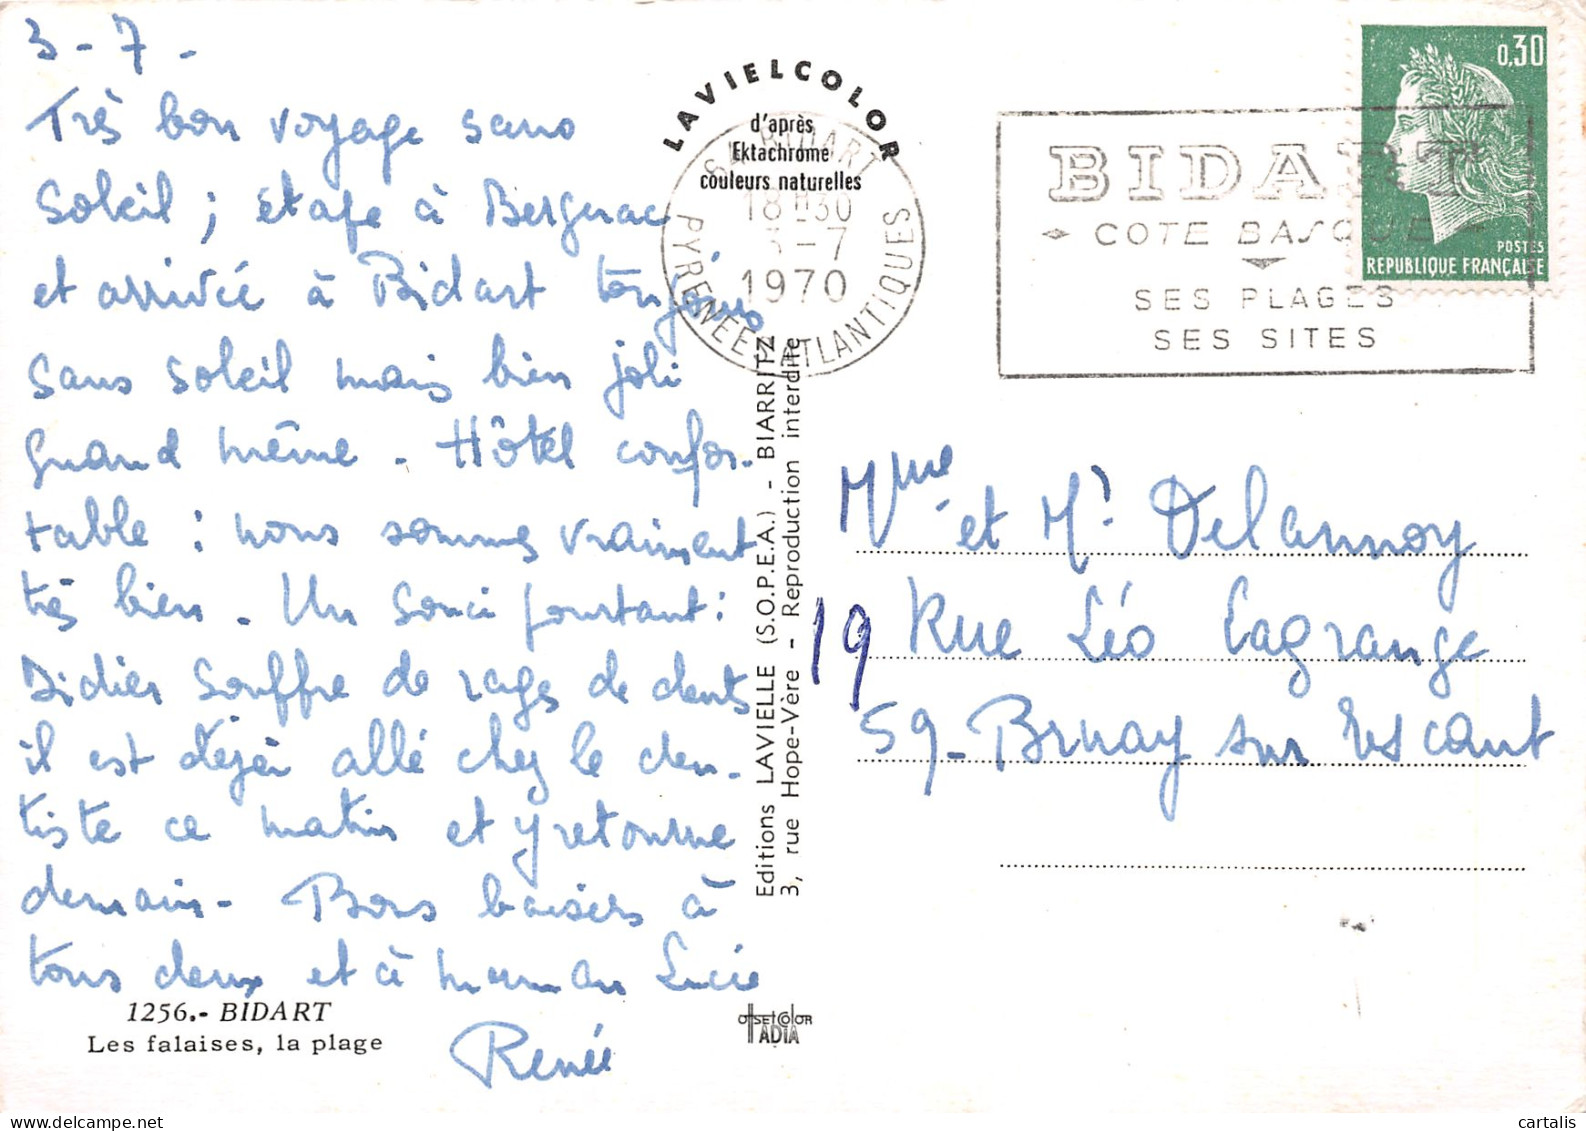 3 - 7 -
Très bon voyage sans
soleil ; étape à Bergerac
et arrivée à Bidart toujours
sans soleil mais bien joli
quand même - Hôtel confor-
table : nous sommes vraiment
très bien - Un souci pourtant :
Didier souffre de rages de dents
il est déjà allé chez le den-
tiste ce matin et y retourne
demain - Bons baisers à
tous deux et à maman Lucie
Renée
1256.- BIDART
Les falaises, la plage
LAVIELCOLOR
d'après
Ektachrome
couleurs naturelles
BIDART
18 H 30
3-7
1970
PYRENEES ATLANTIQUES
Editions LAVIELLE (S.O.P.E.A.) - BIARRITZ
3, rue Hope-Vère - Reproduction interdite
offset color
IADIA
BIDART
COTE BASQUE
SES PLAGES
SES SITES
0,30
POSTES
REPUBLIQUE FRANÇAISE
Mme et Mr Delannoy
19 Rue Léo Lagrange
59 - Bruay sur Escaut
cartalis